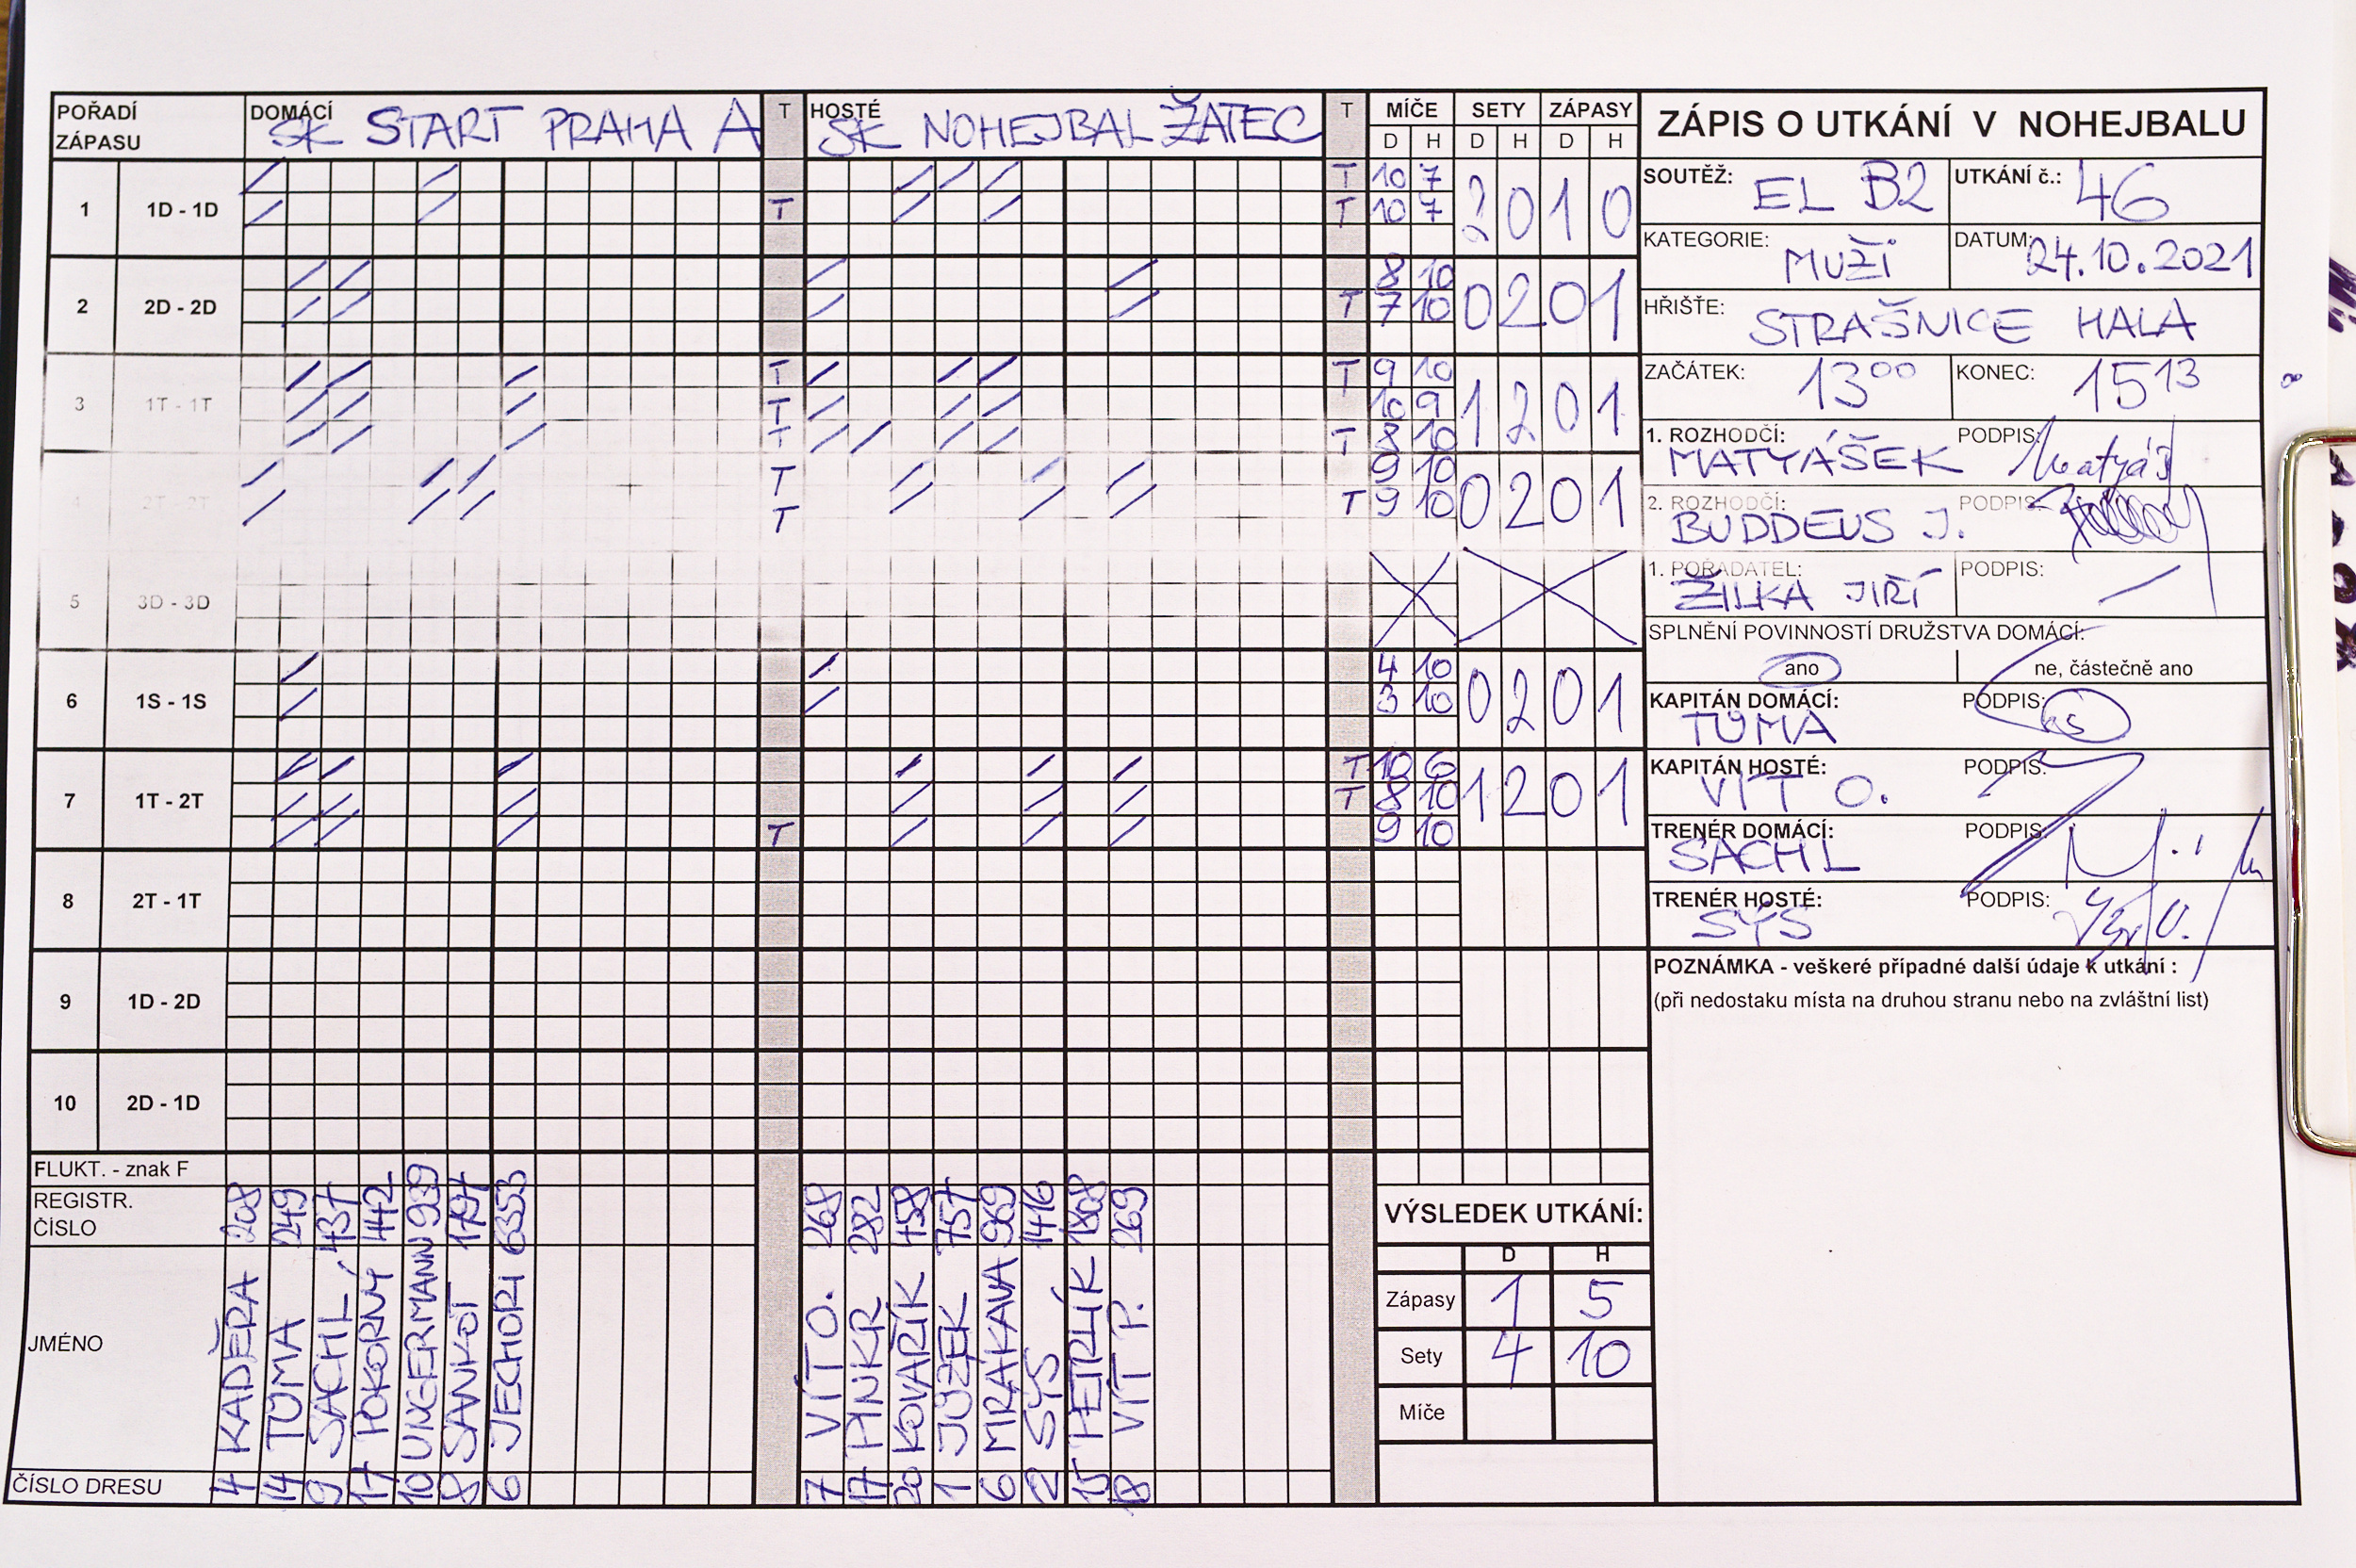 POŘADÍ ZÁPASU DOMÁCÍ SK START PRAHA A T HOSTÉ SK NOHEJBAL ŽATEC T MÍČE SETY ZÁPASY
D H D H D H
ZÁPIS O UTKÁNÍ V NOHEJBALU
1 1D - 1D T T 10 7 2 0 1 0
T 10 7
2 2D - 2D 8 10 0 2 0 1
T 7 10
3 1T - 1T T T 9 10 1 2 0 1
T 10 9
T T 8 10
4 2T - 2T T 9 10 0 2 0 1
T T 9 10
5 3D - 3D
6 1S - 1S 4 10 0 2 0 1
3 10
7 1T - 2T T 10 6 1 2 0 1
T 8 10
T 9 10
8 2T - 1T
9 1D - 2D
10 2D - 1D
FLUKT. - znak F
REGISTR. ČÍSLO 208 249 437 442 939 1797 6353 268 282 458 757 969 1416 1808 269
JMÉNO KADEŘA TŮMA SACHL POKORNÝ UNGERMANN SANKOT JECHORI VÍT O. PINKR KOVAŘÍK JŮZEK MRÁKAVA SÝS PETRLÍK VÍT P.
ČÍSLO DRESU 4 14 9 17 10 8 6 7 17 20 1 6 2 15 18
SOUTĚŽ: EL B2 UTKÁNÍ č.: 46
KATEGORIE: MUŽI DATUM: 24.10.2021
HŘIŠTĚ: STRAŠNICE HALA
ZAČÁTEK: 13 00 KONEC: 15 13
1. ROZHODČÍ: MATYÁŠEK PODPIS:
2. ROZHODČÍ: BUDDEUS J. PODPIS:
1. POŘADATEL: ŽILKA JIŘÍ PODPIS: —
SPLNĚNÍ POVINNOSTÍ DRUŽSTVA DOMÁCÍ:
ano ne, částečně ano
KAPITÁN DOMÁCÍ: TŮMA PODPIS:
KAPITÁN HOSTÉ: VÍT O. PODPIS:
TRENÉR DOMÁCÍ: SACHL PODPIS:
TRENÉR HOSTÉ: SÝS PODPIS:
POZNÁMKA - veškeré případné další údaje k utkání :
(při nedostaku místa na druhou stranu nebo na zvláštní list)
VÝSLEDEK UTKÁNÍ:
D H
Zápasy 1 5
Sety 4 10
Míče